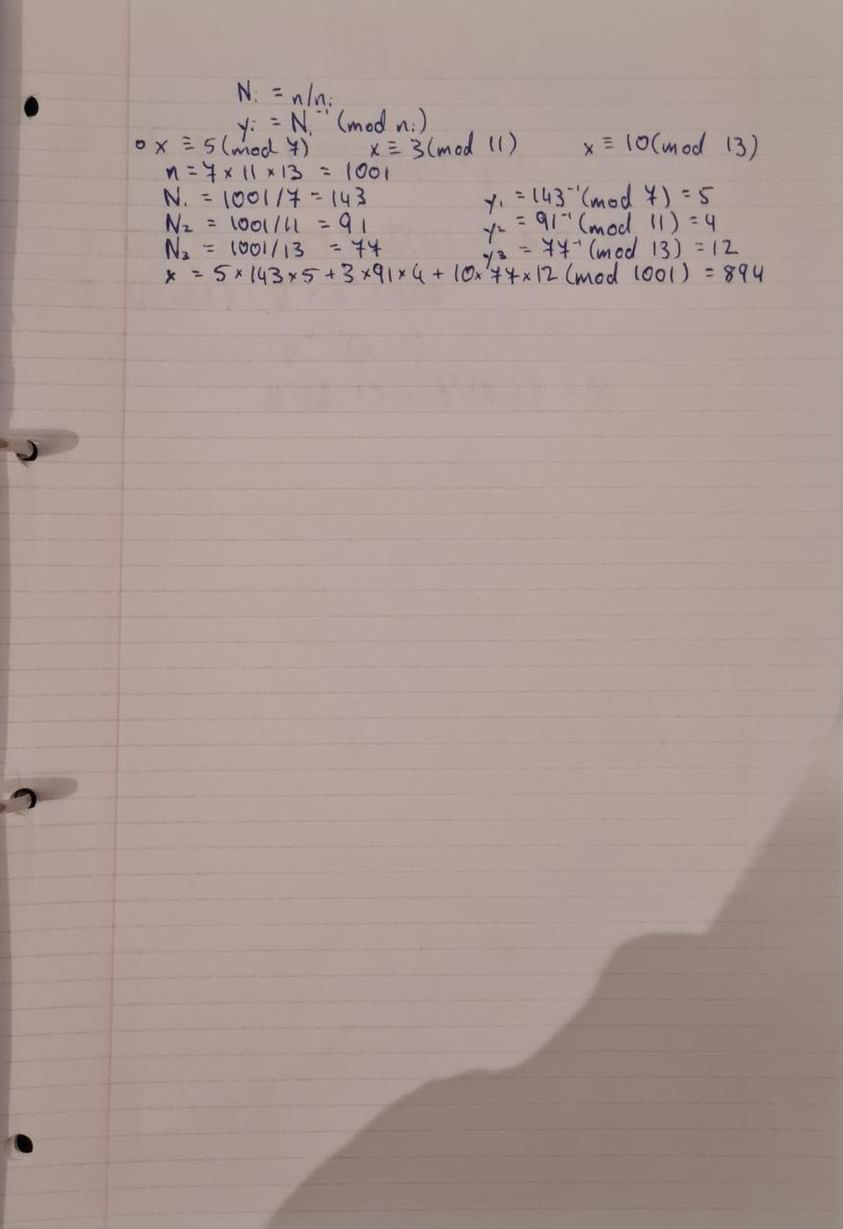 Nᵢ = n/nᵢ
yᵢ = Nᵢ⁻¹ (mod nᵢ)
o x ≡ 5(mod 7) x ≡ 3(mod 11) x ≡ 10(mod 13)
n = 7 × 11 × 13 = 1001
N₁ = 1001/7 = 143 y₁ = 143⁻¹(mod 7) = 5
N₂ = 1001/11 = 91 y₂ = 91⁻¹(mod 11) = 4
N₃ = 1001/13 = 77 y₃ = 77⁻¹(mod 13) = 12
x = 5 × 143 × 5 + 3 × 91 × 4 + 10 × 77 × 12 (mod 1001) = 894